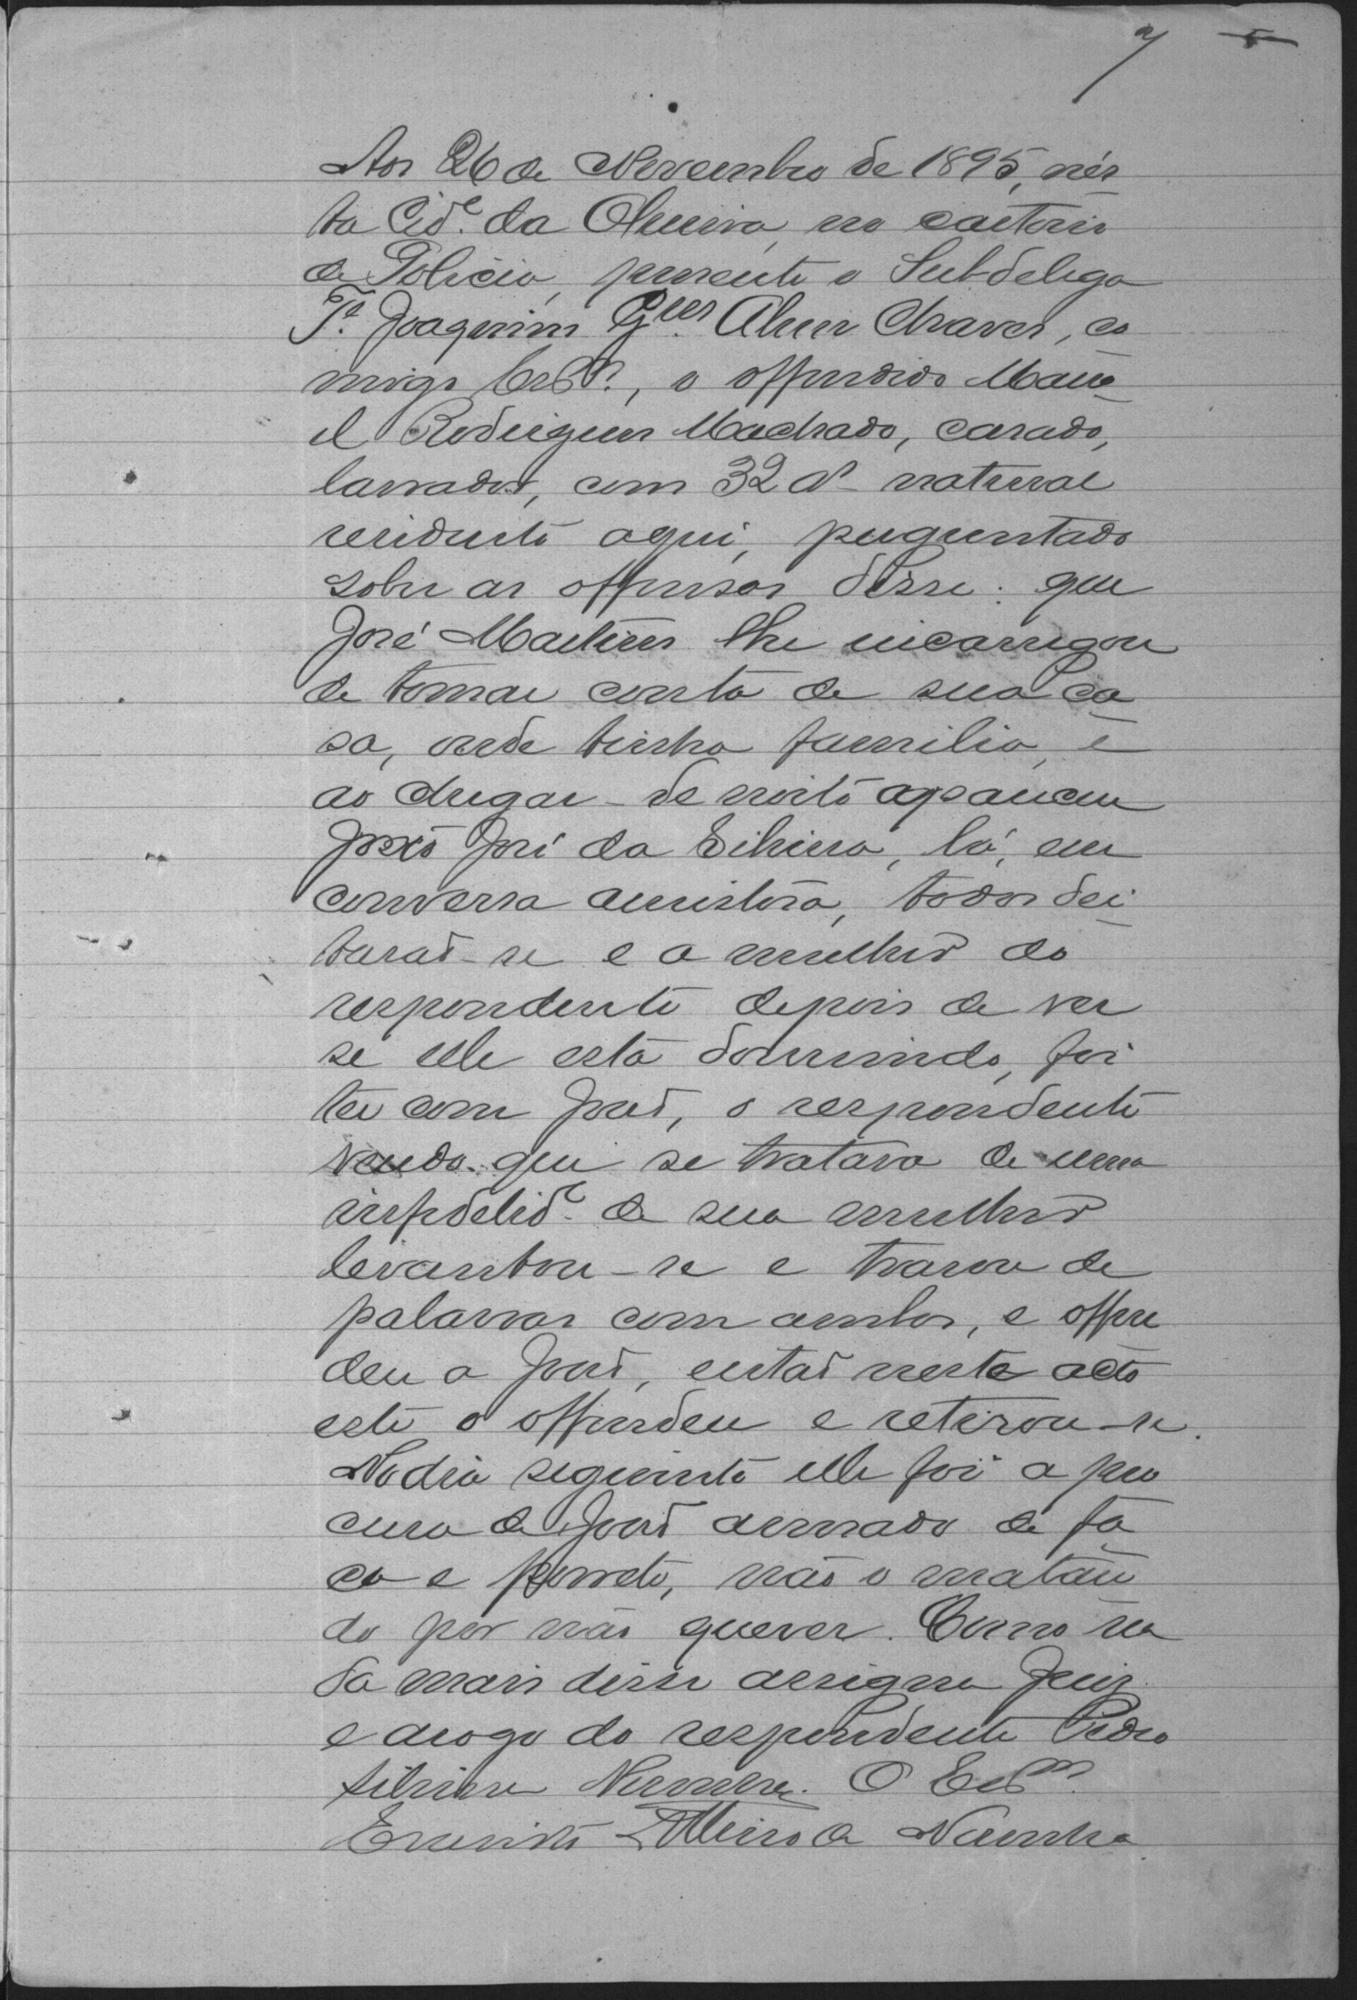 7 5
Aos 26 de Novembro de 1895, nes
ta Cid.e da Oliveira, no cartorio
de Policia, presente o Subdelega
T.e Joaquim Glz. Alves Chaves, co
migo Escr.m, o offendido Mano
el Rodrigues Machado, casado,
lavrador, com 32 a.s natural
residente aqui, preguntado
sobre as offensas disse: que
José Martins lhe incarregou
de tomar conta de sua ca
sa, onde tinha familia, e
ao chegar de noite apareceu
João José da Silveira, lá, em
conversa amistosa, todos dei
tarão-se e a mulher do
respondente depois de ver
se elle está dormindo, foi
ter com João, o respondente
vendo que se tratava de uma
infidelid.e de sua mulher
levantou-se e travou de
palavras com ambos, e offen
deu a João, então neste acto
este o offendeu e retirou-se.
No dia seguinte elle foi a pro
cura de João armado de fa
ca e porrete, não o matan
do por não querer. Como na
da mais disse assigna Juiz
e arogo do respondente Pedro
O Escr.m